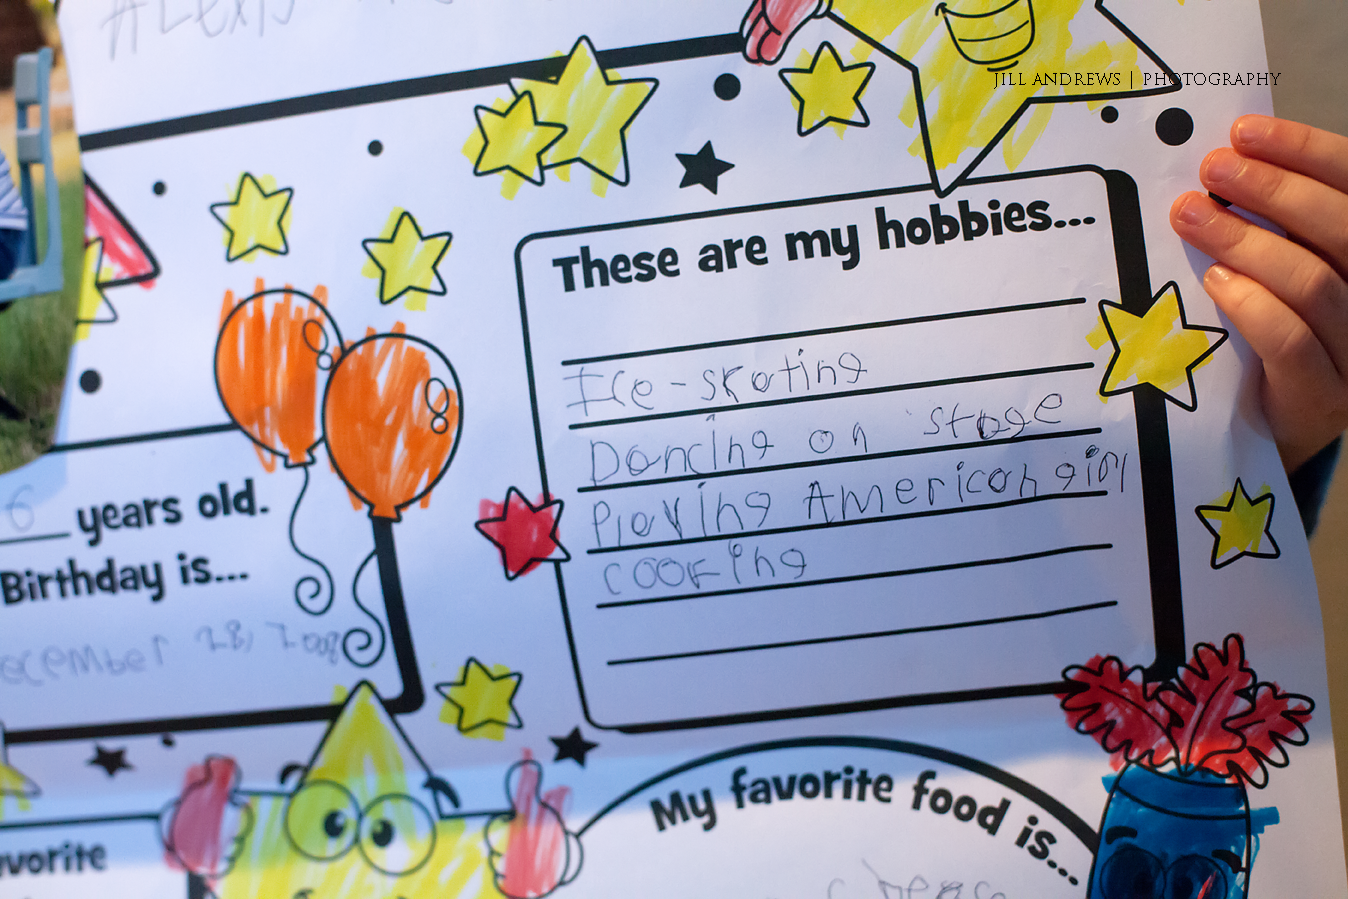 #Lexi
JILL ANDREWS | PHOTOGRAPHY
These are my hobbies...
Ice-skating
Dancing on stage
Playing American girl
cooking
6 years old.
Birthday is...
ecember 28, 2009
vorite
My favorite food is...